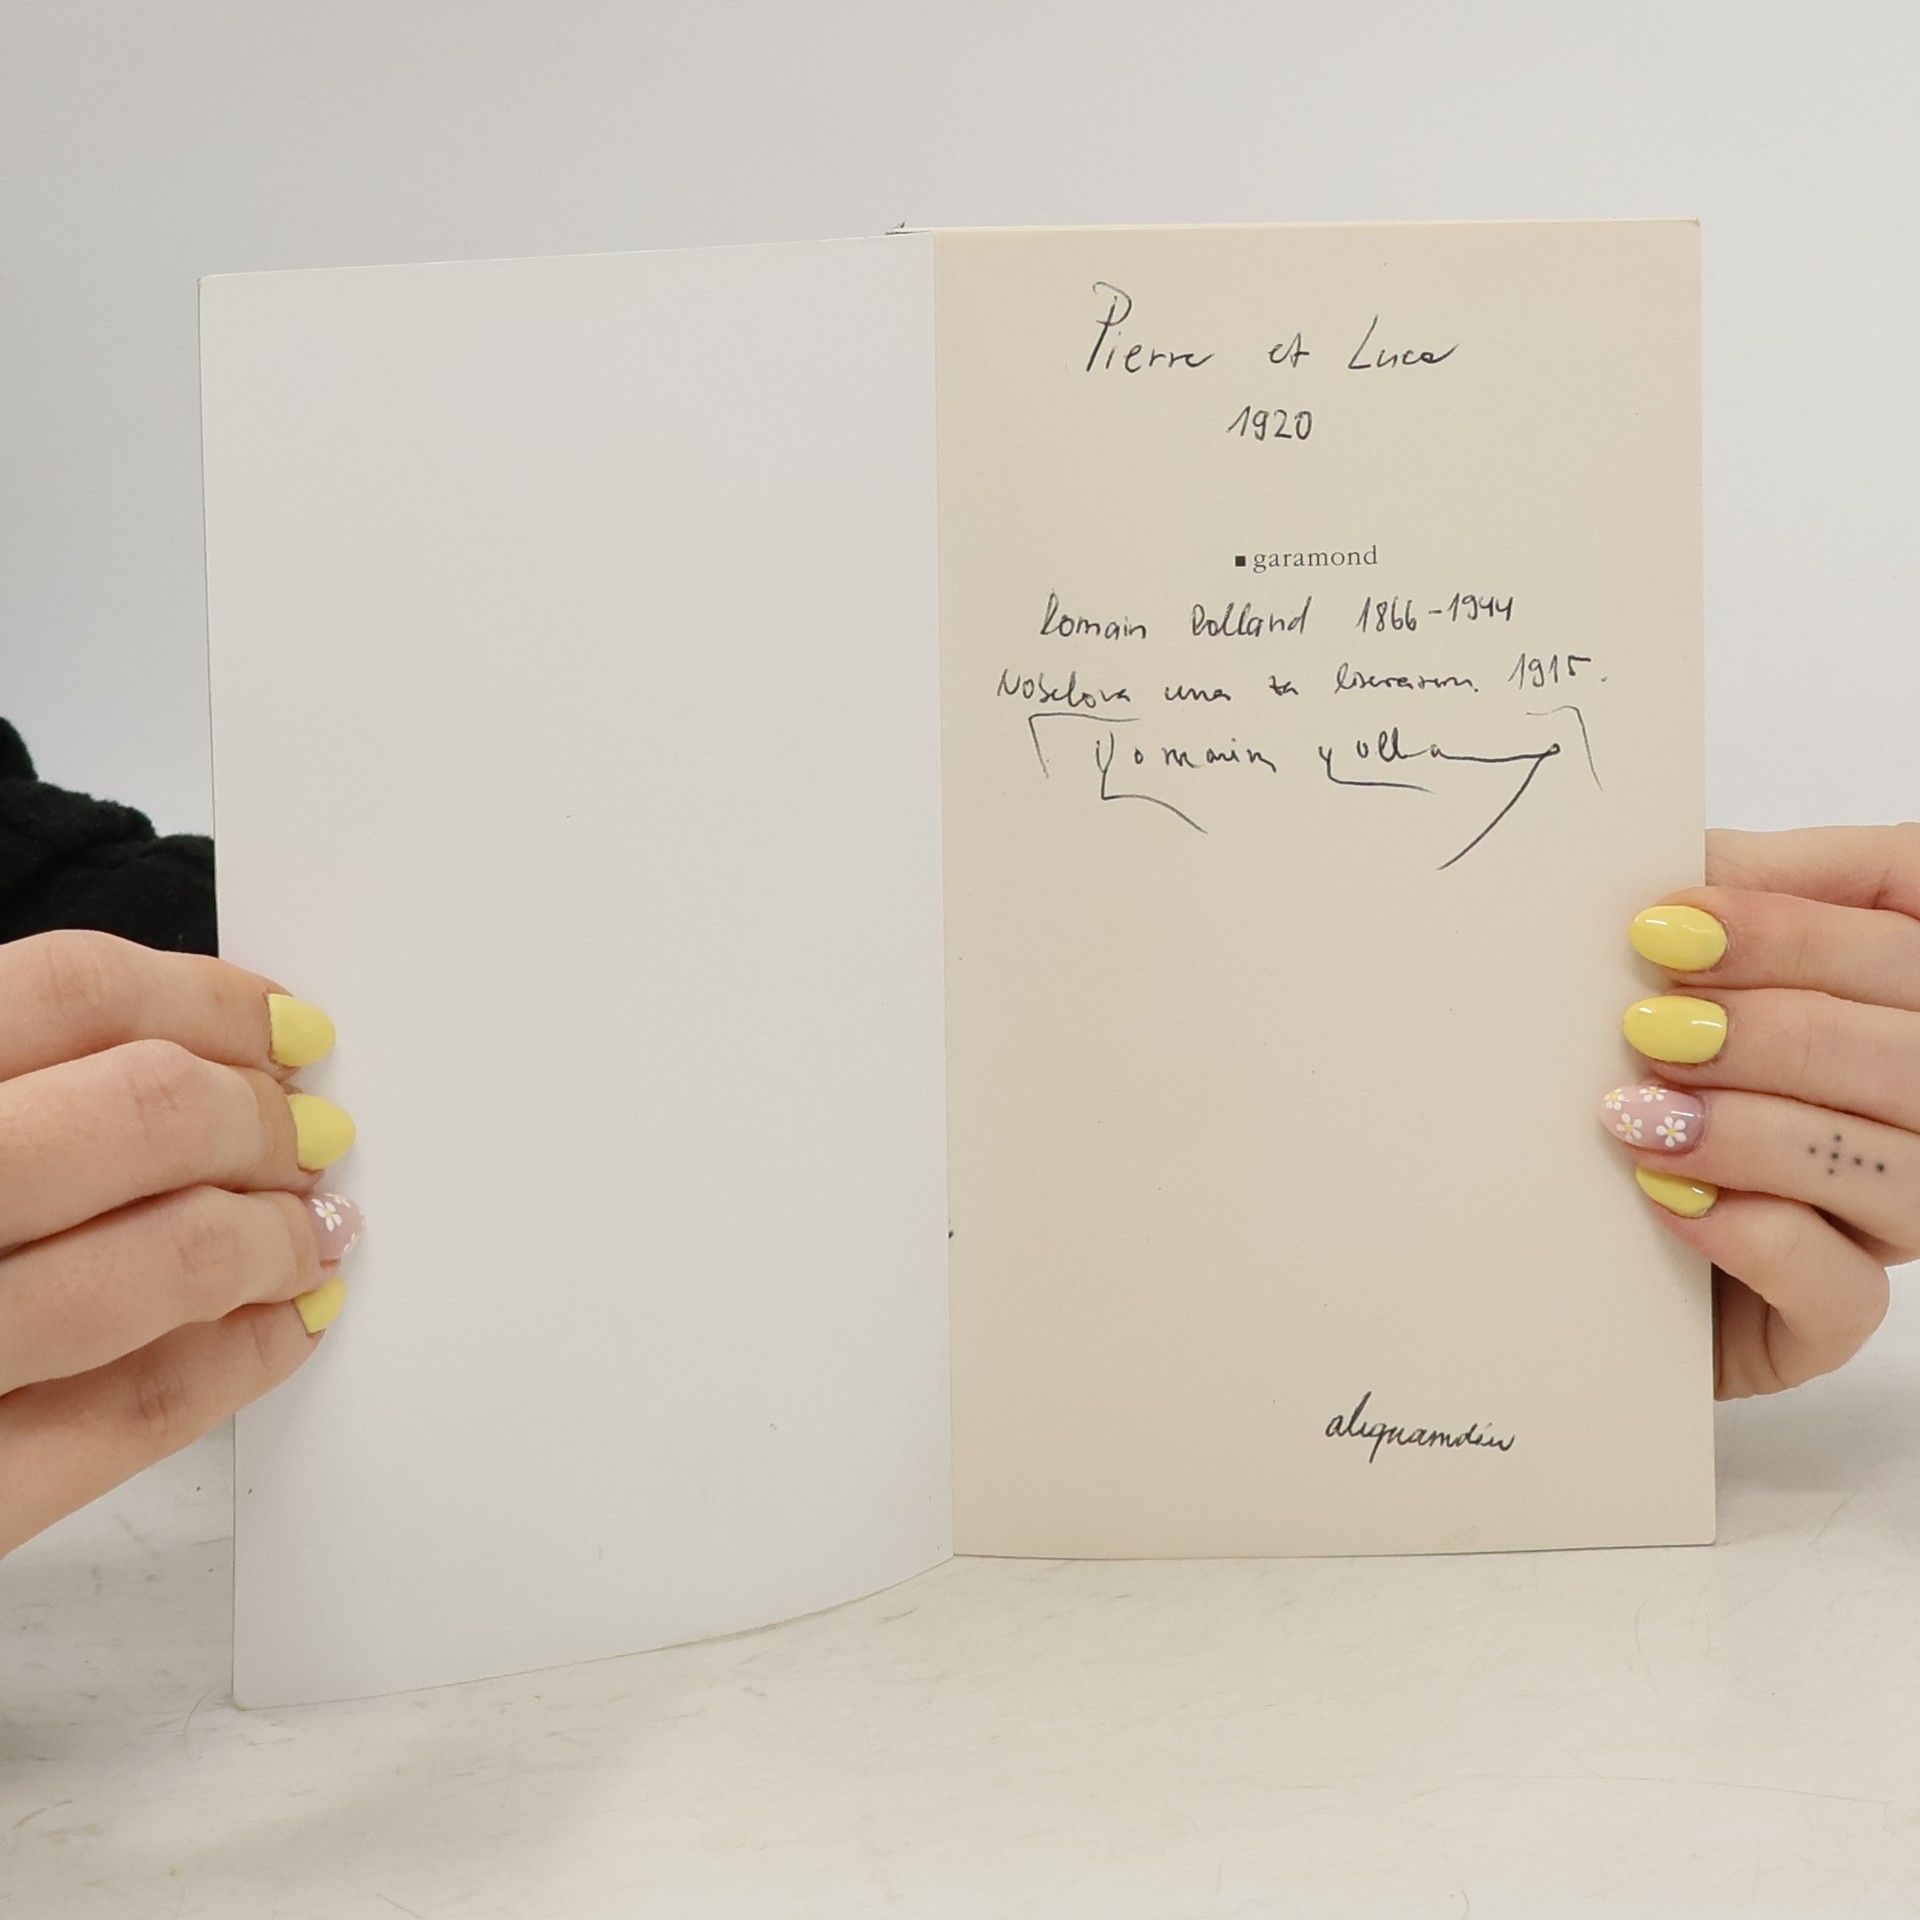 Pierre et Luce
1920
garamond
Romain Rolland 1866-1944
Nobelova cena za literaturu 1915.
Romain Rolland
aliquamdiu